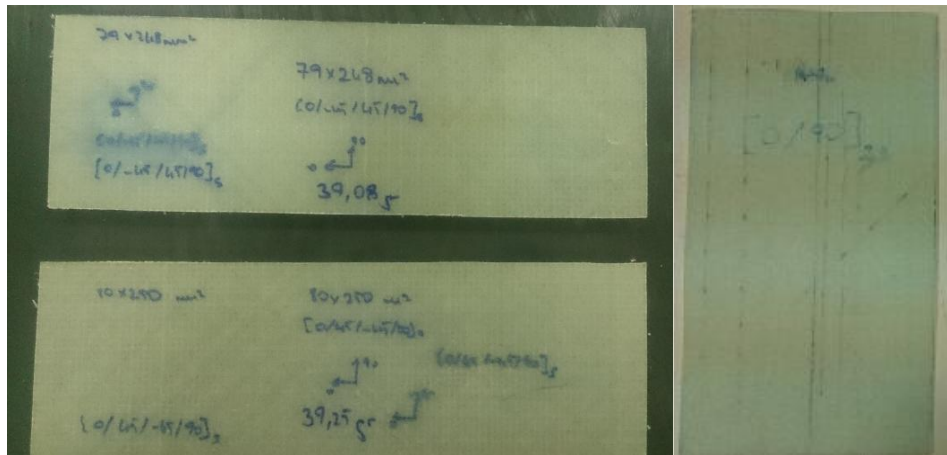 79 x 248 mm²
[0/-45/45/90]s
79 x 248 mm²
[0/-45/45/90]s
90
0
39,08 gr
80 x 250 mm²
[0/45/-45/90]s
80 x 250 mm²
[0/45/-45/90]s
90
0
39,25 gr
[0/90]